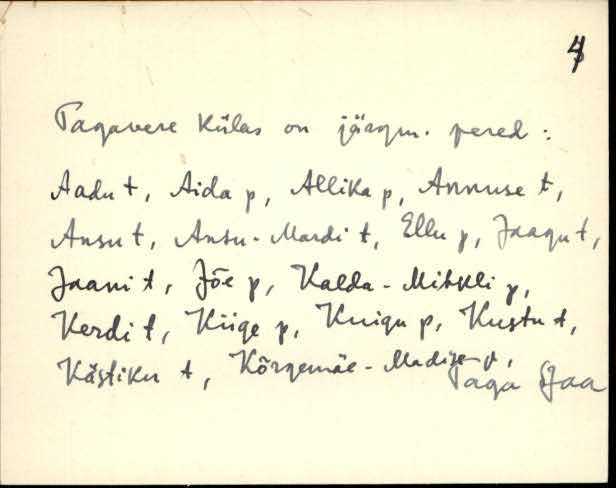 4
Tagavere külas on järgm. pered:
Aadu t, Aida p, Allika p, Annuse t,
Ansu t, Ansu-Mardi t, Ellu p, Jaagu t,
Jaani t, Jõe p, Kalda-Mihkli p,
Kerdi t, Kiige p, Kuigu p, Kustu t,
Kästiku t, Kõrgemäe-Madise p,
Paga Jaa